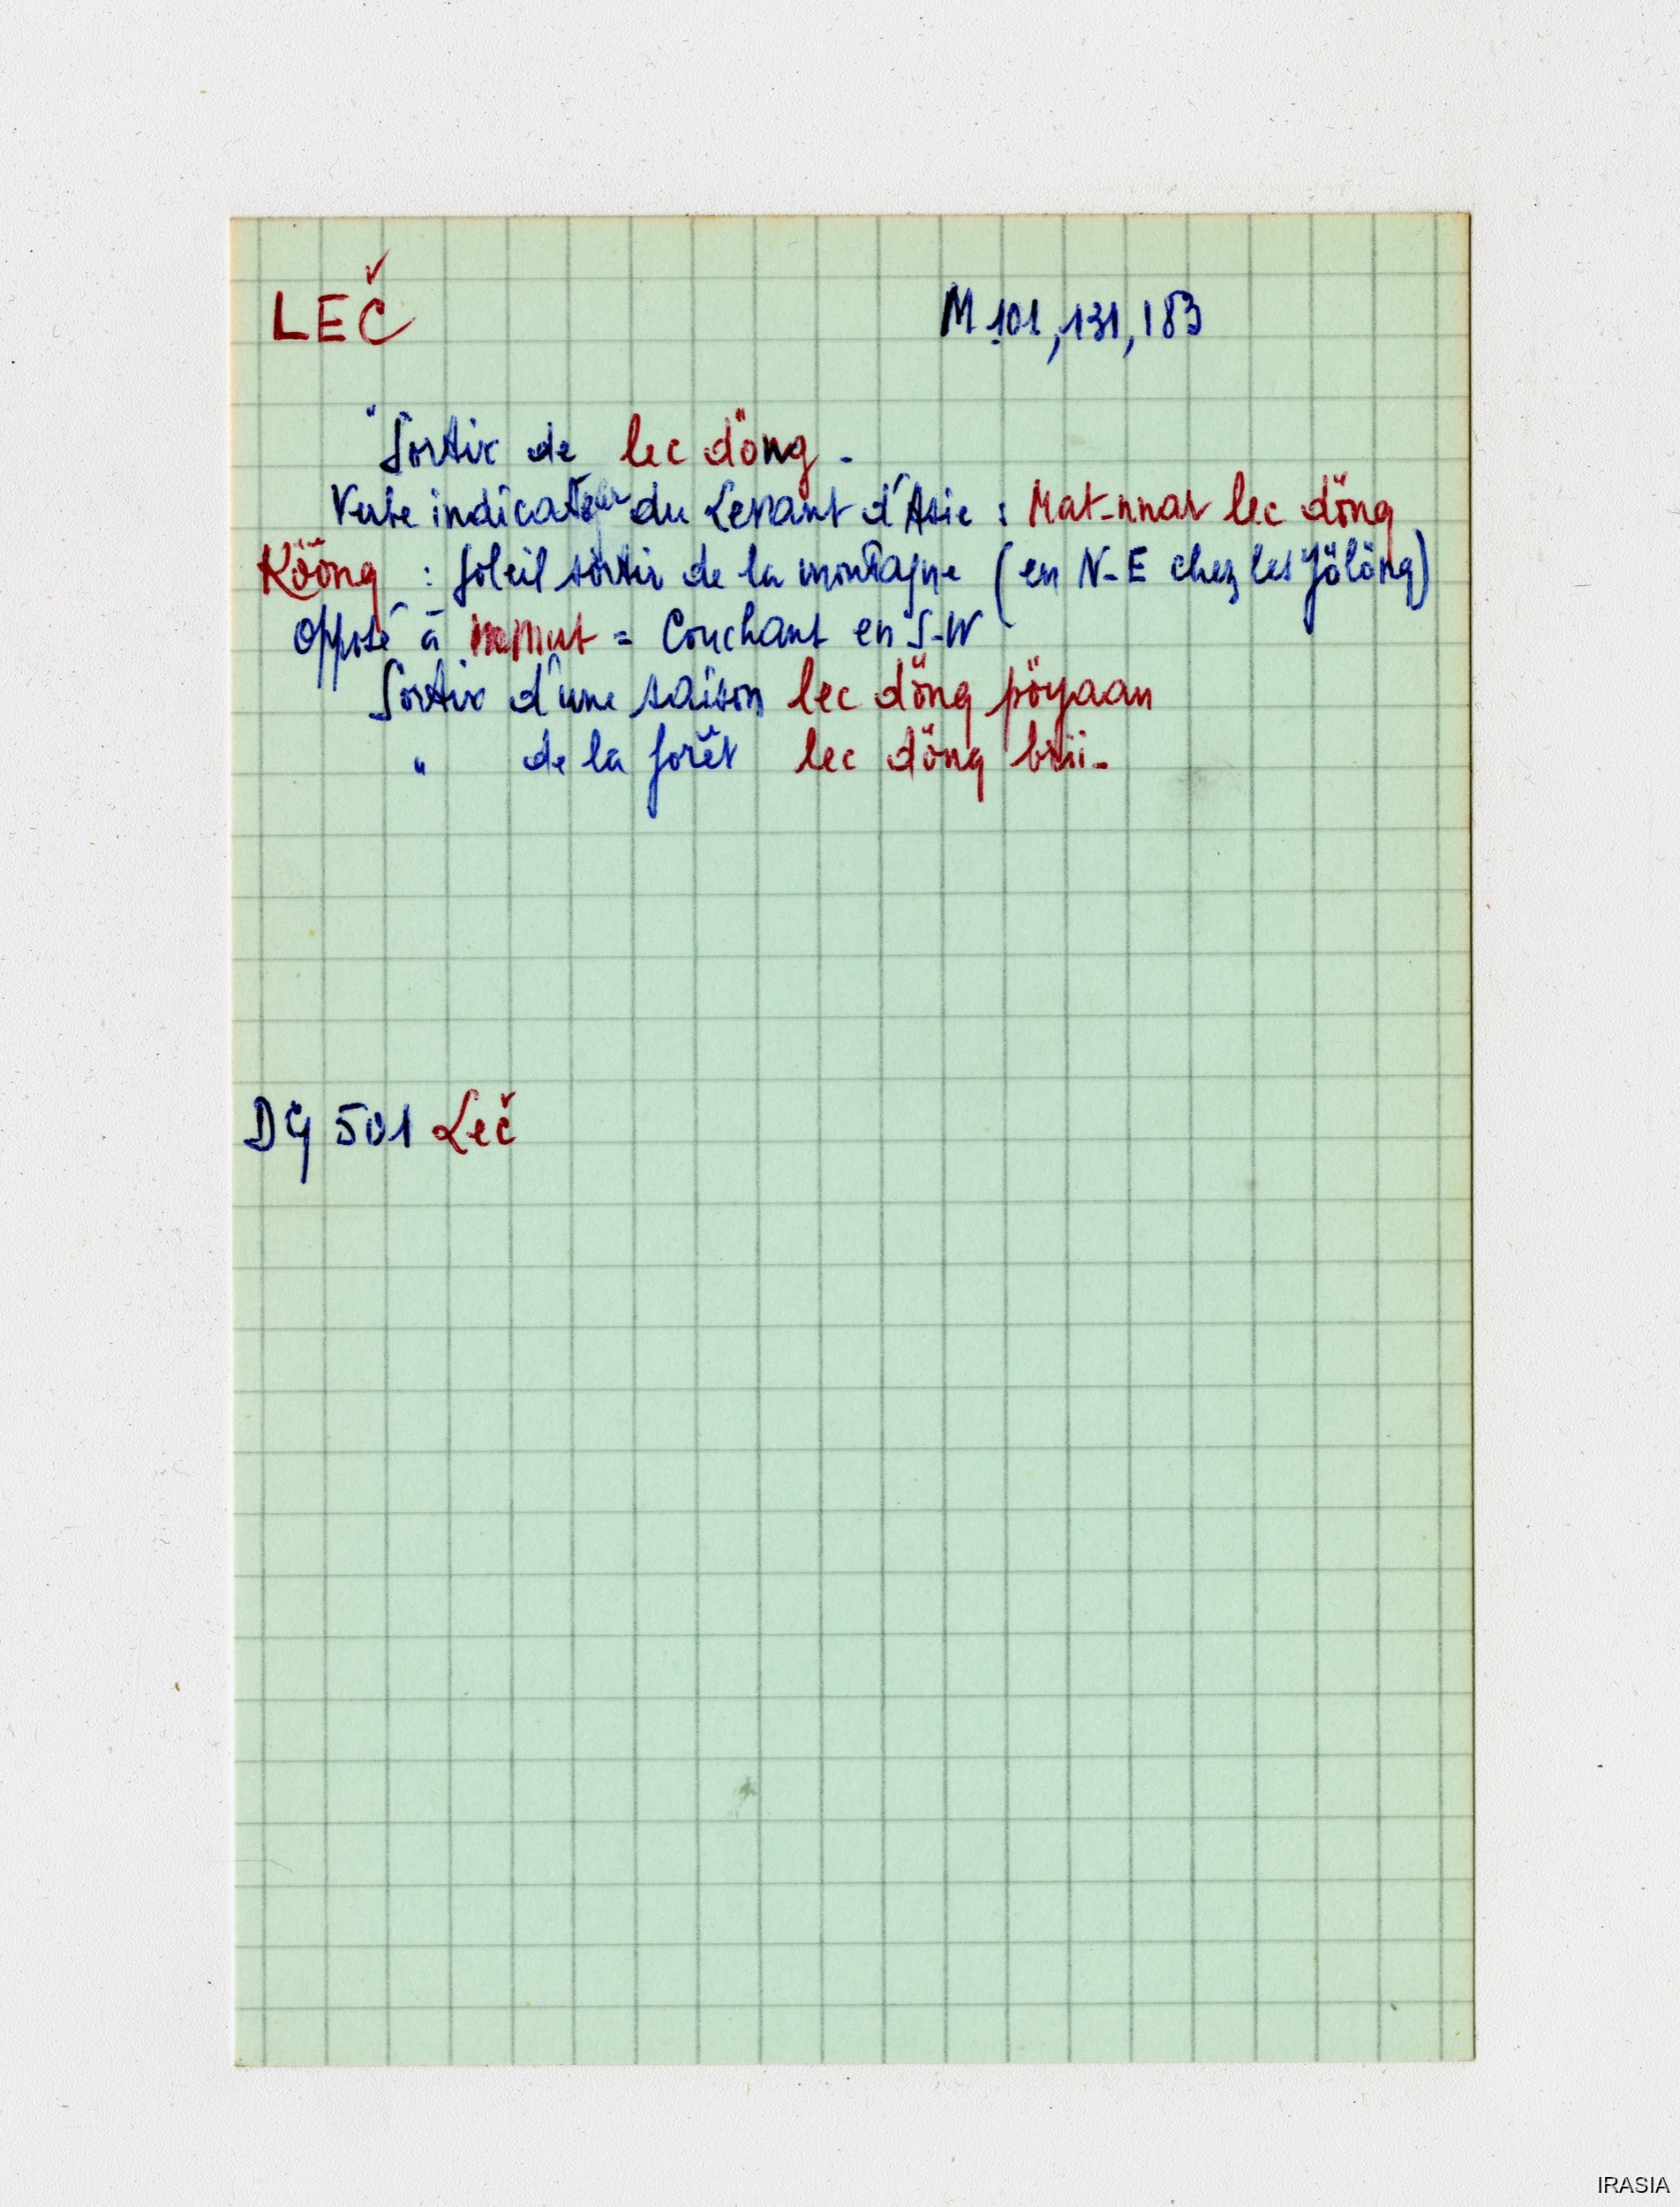 LEČ M 101, 131, 183
" Sortir de lec döng -
Verbe indicateur du Levant d'Asie : Mat-nnar lec döng
Kööng : Soleil sortir de la montagne (en N-E chez les Jölöng)
opposé à mut = Couchant en S-W
Sortir d'une saison lec döng pöyaan
" de la forêt lec döng brii -
DG 501 Leč
IRASIA